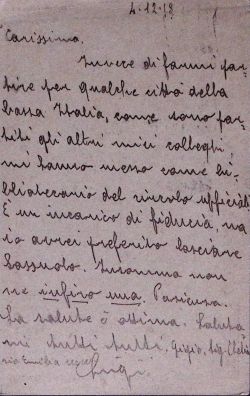 4-12-18
Carissima.
Invece di farmi par
tire per qualche città della
bassa Italia, come sono par
titi gli altri miei colleghi
mi hanno messo come bi
bliotecario del circolo ufficiali
È un incarico di fiducia, ma
io avrei preferito lasciare
Sassuolo. Insomma non
ne infiro una. Pazienza.
La salute è ottima. Saluta
mi tutti tutti. Gigio, Sig.
Emilia
Luigi